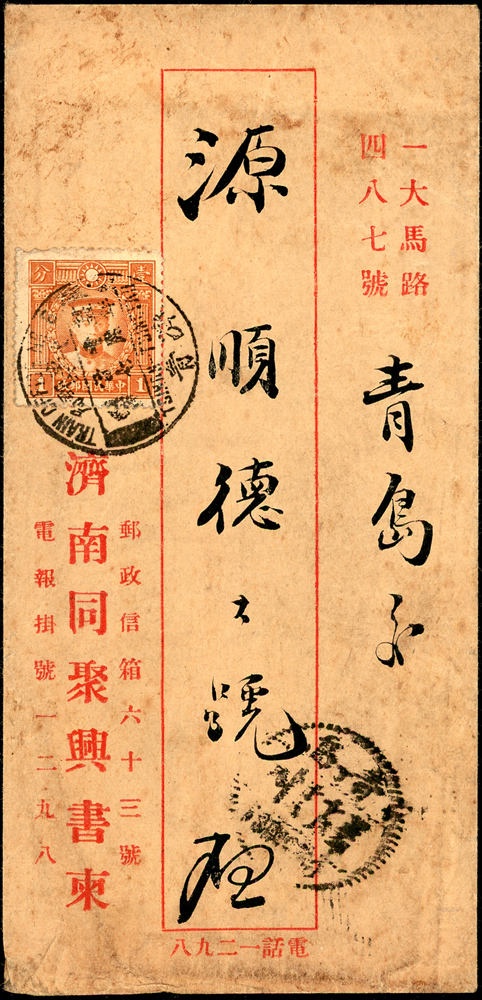 一大馬路
四八七號
青島
源順德大號
郵政信箱六十三號
濟南同聚興書柬
電報掛號一二九八
電話一二九八
壹 分
中華民國郵政
1 1
TRAIN
青